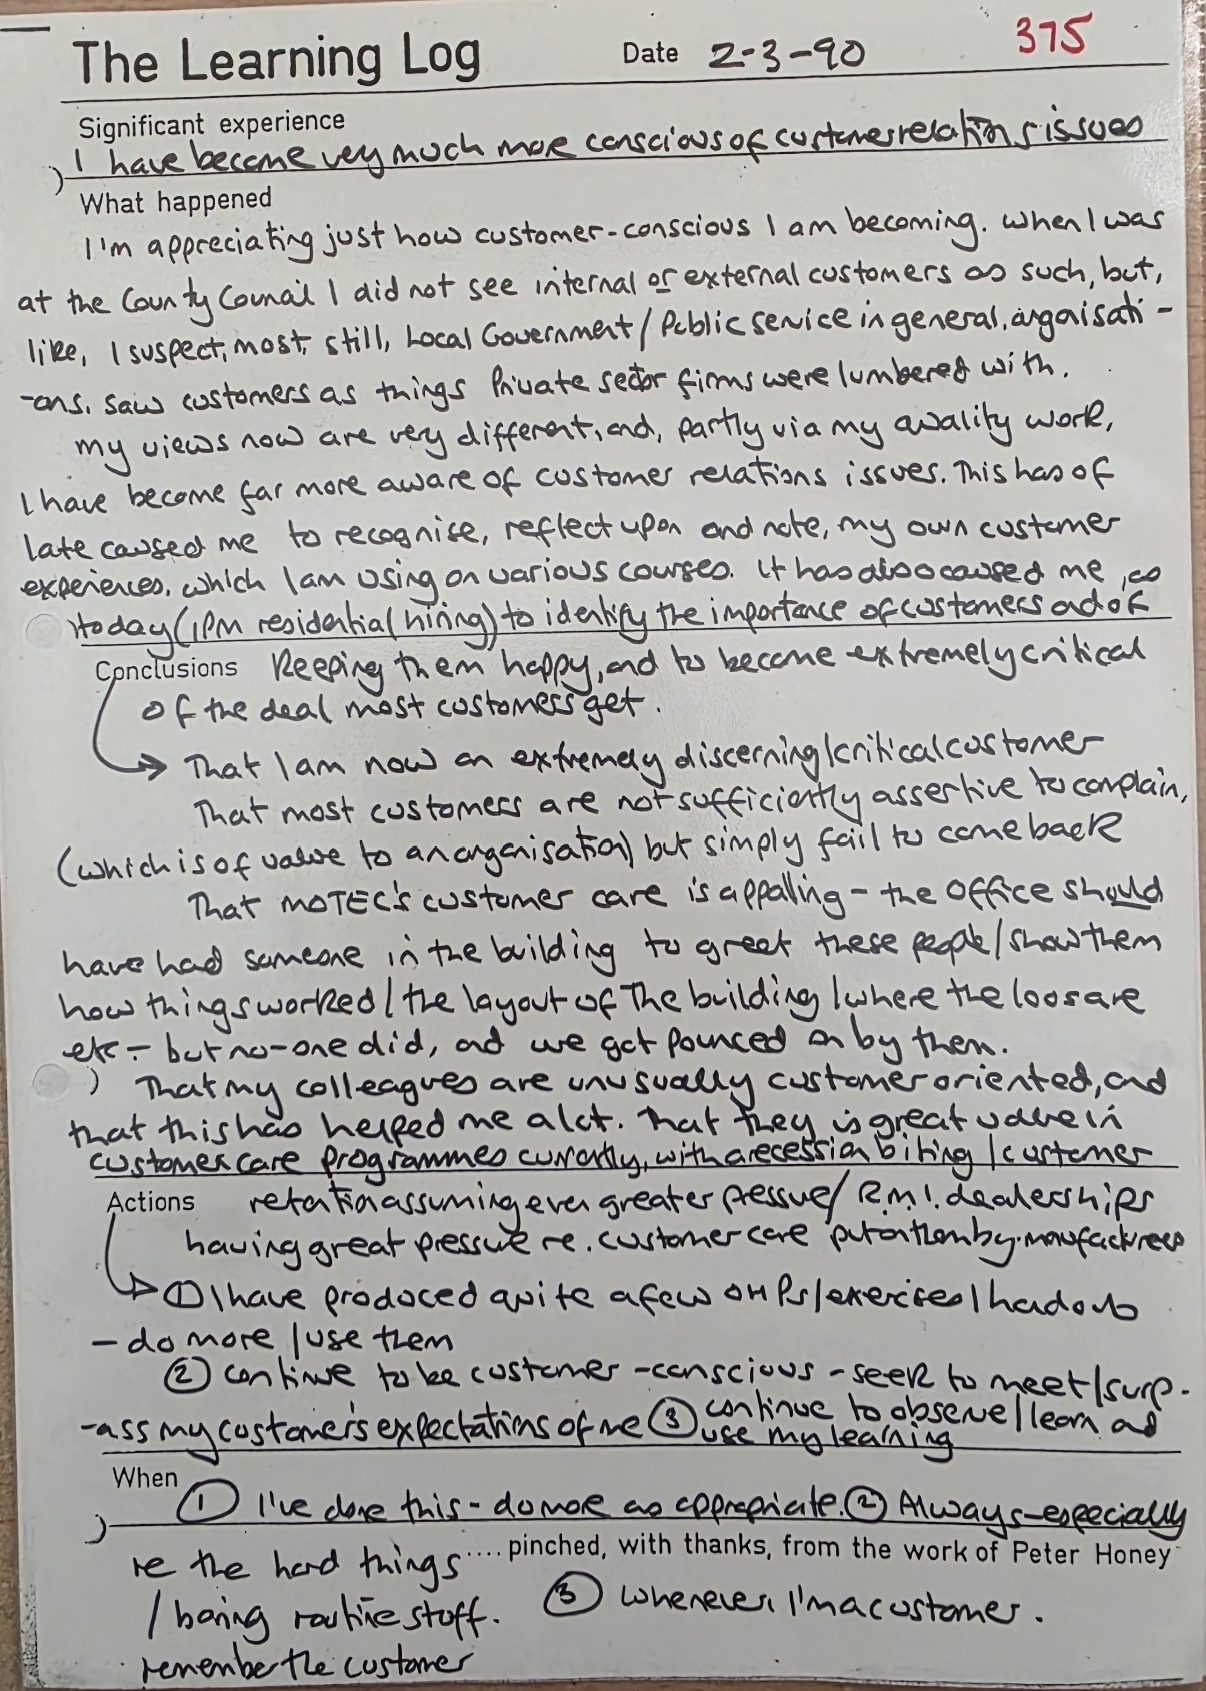 The Learning Log Date 2-3-90 375
Significant experience
I have become very much more conscious of customer relations issues
What happened
I'm appreciating just how customer-conscious I am becoming. When I was
at the County Council I did not see internal or external customers as such, but,
like, I suspect, most, still, Local Government/Public service in general, organisati-
-ons. saw customers as things Private sector firms were lumbered with.
my views now are very different, and, partly via my quality work,
I have become far more aware of customer relations issues. This has of
late caused me to recognise, reflect upon and note, my own customer
experiences, which I am using on various courses. It has also caused me, as
today (IPM residential hiring) to identify the importance of customers and of
Conclusions Keeping them happy, and to become extremely critical
of the deal most customers get.
→ That I am now an extremely discerning/critical customer
That most customers are not sufficiently assertive to complain,
(which is of value to an organisation) but simply fail to come back
That MOTEC's customer care is appalling - the office should
have had someone in the building to greet these people/show them
how things worked/the layout of the building/where the loos are
etc - but no-one did, and we got pounced on by them.
That my colleagues are unusually customer oriented, and
that this has helped me a lot. That they is great value in
customer care programmes currently, with a recession biting/customer
Actions retention assuming ever greater pressure/R.M.I. dealerships
having great pressure re. customer care put on them by manufacturers
→ ① I have produced quite a few OHPs/exercises/handouts
- do more/use them
② continue to be customer-conscious - seek to meet/surp-
-ass my customer's expectations of me ③ continue to observe/learn and
use my learning
When
① I've done this - do more as appropriate. ② Always - especially
.... pinched, with thanks, from the work of Peter Honey
re the hard things
/boring routine stuff. ③ Whenever I'm a customer.
remember the customer